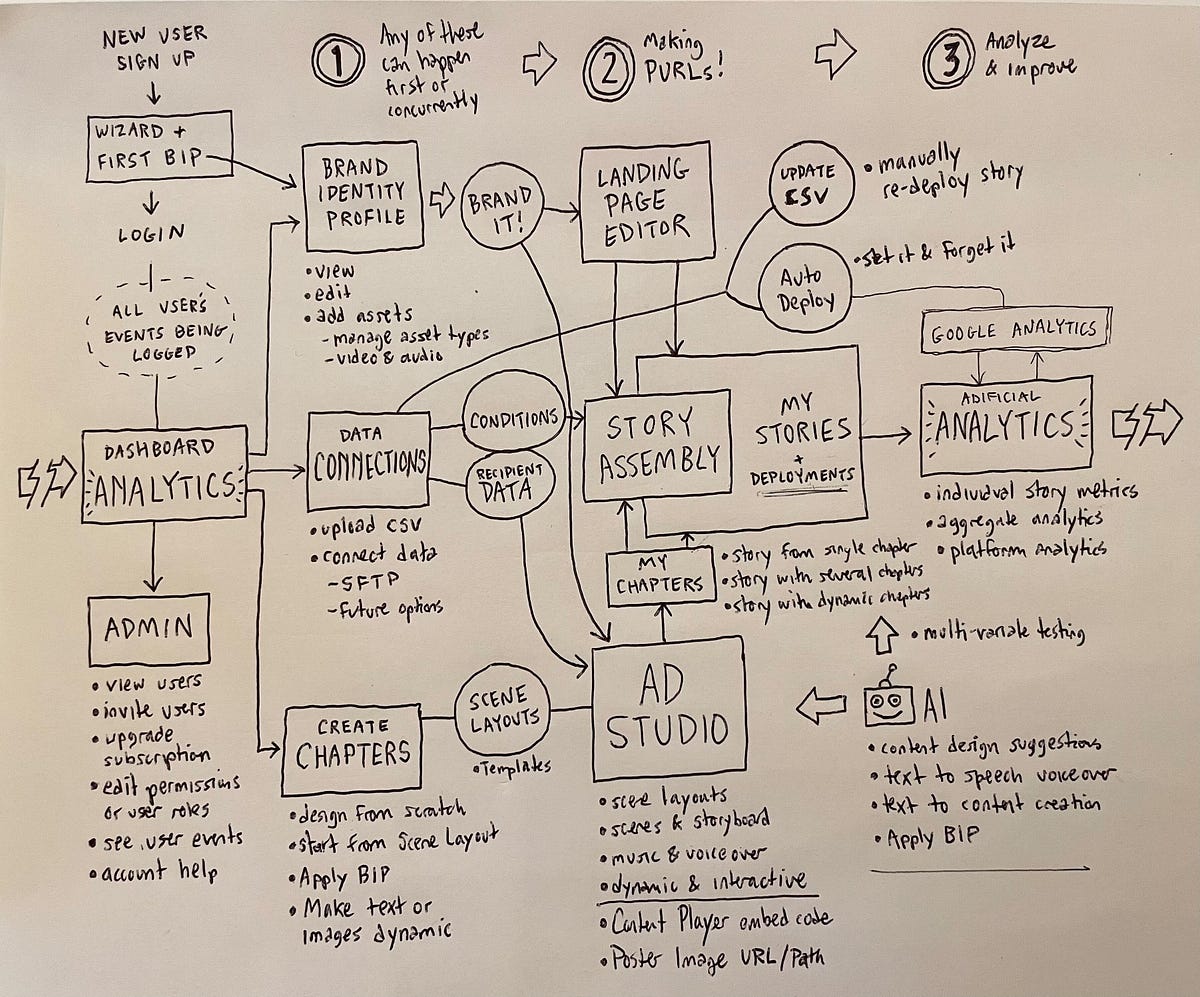 NEW USER
SIGN UP
1
Any of these
can happen
first or
concurrently
2
Making
PURLs!
3
Analyze
& improve
WIZARD +
FIRST BIP
LOGIN
ALL USER'S
EVENTS BEING
LOGGED
DASHBOARD
ANALYTICS
ADMIN
• view users
• invite users
• upgrade
subscription
• edit permissions
or user roles
• see user events
• account help
BRAND
IDENTITY
PROFILE
• view
• edit
• add assets
- manage asset types
- video & audio
BRAND
IT!
LANDING
PAGE
EDITOR
UPDATE
CSV
• manually
re-deploy story
Auto
Deploy
• set it & forget it
GOOGLE ANALYTICS
DATA
CONNECTIONS
• upload CSV
• connect data
- SFTP
- future options
CONDITIONS
RECIPIENT
DATA
STORY
ASSEMBLY
MY
STORIES
+
DEPLOYMENTS
ADIFICIAL
ANALYTICS
• individual story metrics
• aggregate analytics
• platform analytics
MY
CHAPTERS
• story from single chapter
• story with several chapters
• story with dynamic chapters
• multi-variate testing
CREATE
CHAPTERS
• design from scratch
• start from Scene Layout
• Apply BIP
• Make text or
images dynamic
SCENE
LAYOUTS
• Templates
AD
STUDIO
• scene layouts
• scenes & storyboard
• music & voice over
• dynamic & interactive
• Content Player embed code
• Poster Image URL/Path
AI
• content design suggestions
• text to speech voiceover
• text to content creation
• Apply BIP